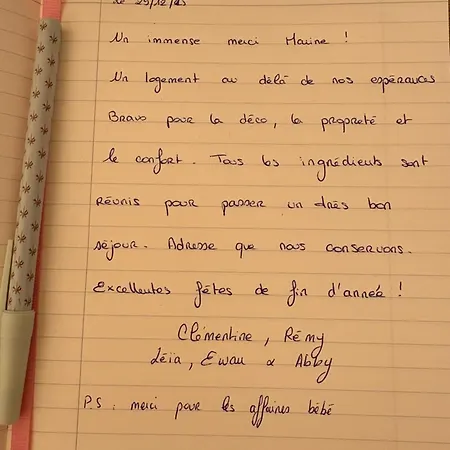 Le 29/12/23
Un immense merci Marine !
Un logement au délà de nos espérances
Bravo pour la déco, la propreté et
le confort. Tous les ingrédients sont
Réunis pour passer un très bon
séjour. Adresse que nous conservons.
Excellentes fêtes de fin d'année !
Clémentine, Rémy
Léïa, Ewan & Abby
P.S : merci pour les affaires bébé